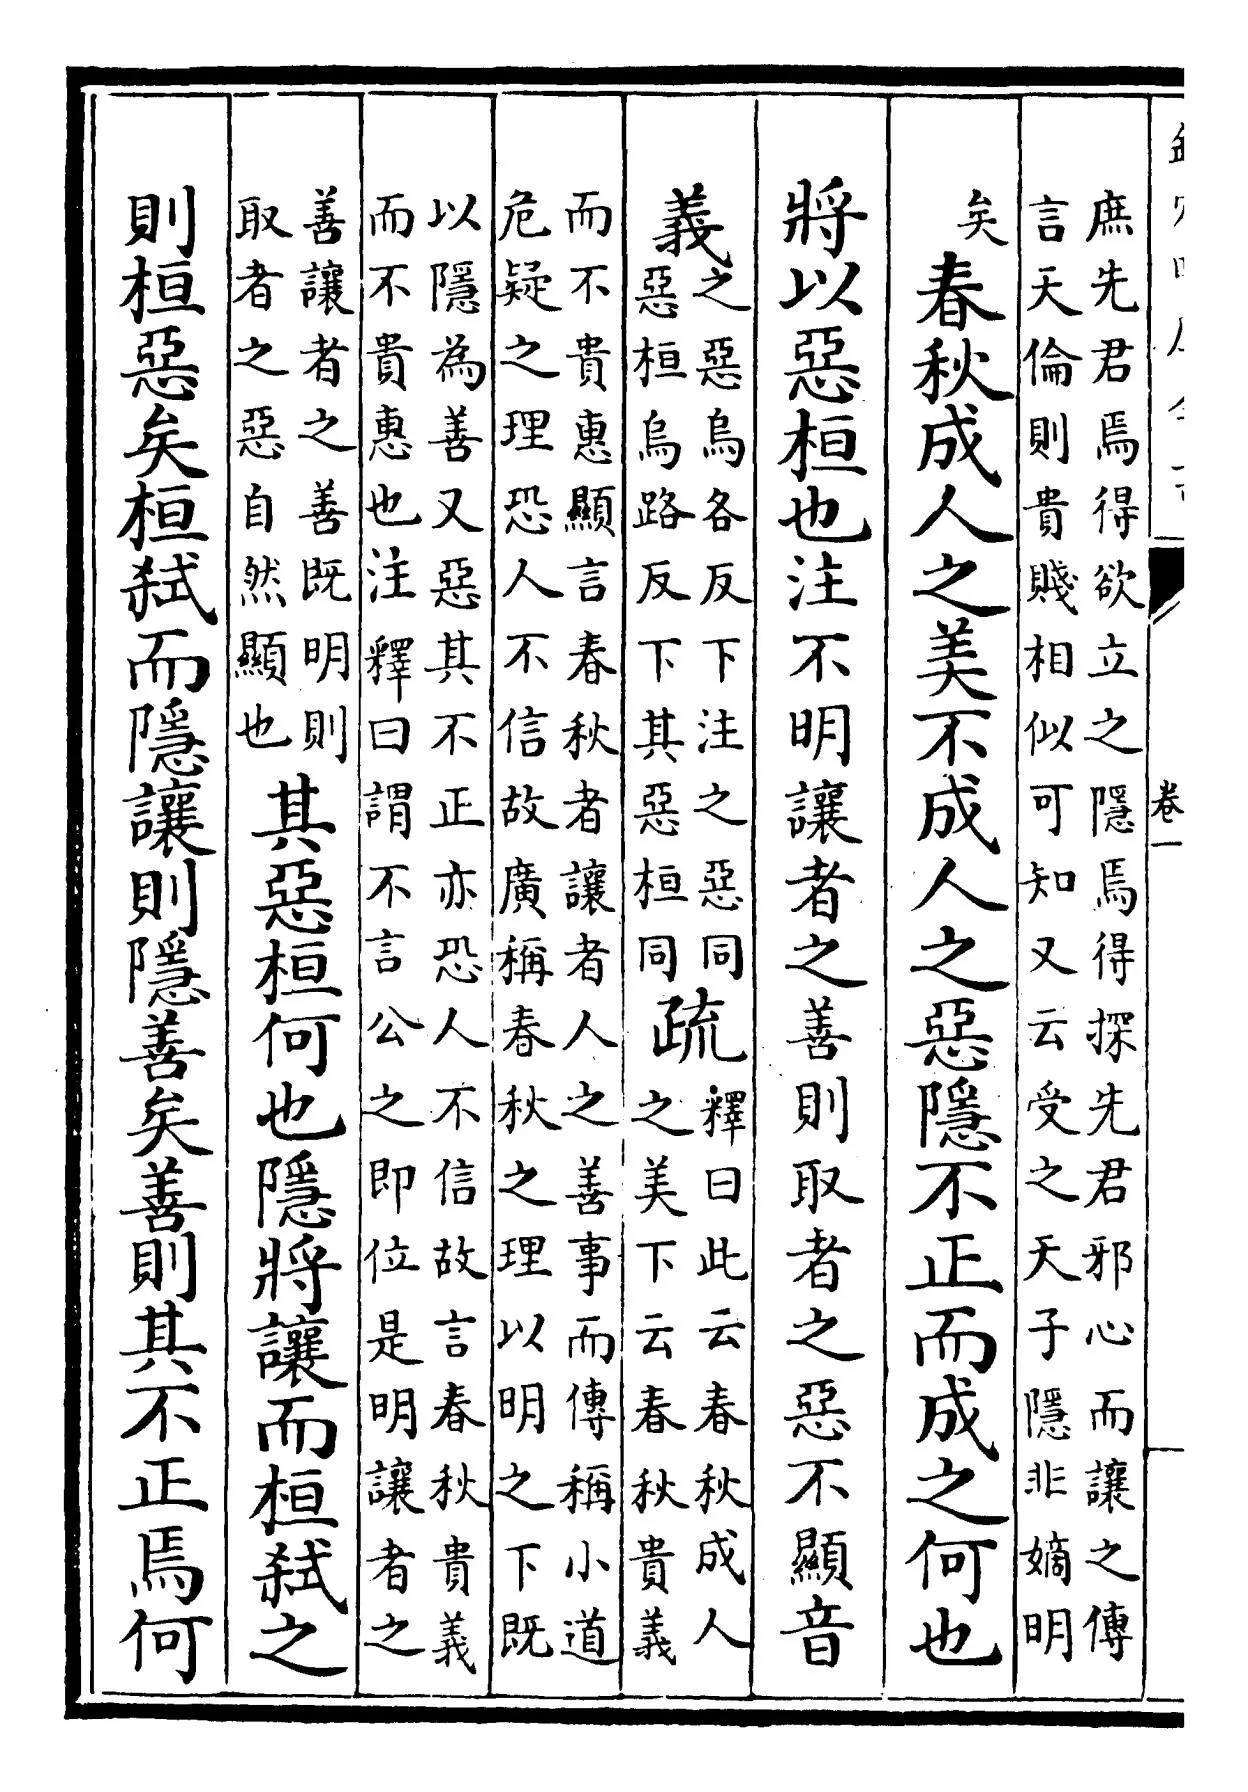 庶先君焉得欲立之隱焉得探先君邪心而讓之傳
言天倫則貴賤相似可知又云受之天子隱非嫡明
矣春秋成人之美不成人之惡隱不正而成之何也
將以惡桓也注不明讓者之善則取者之惡不顯音
義之惡烏各反下注之惡同
惡桓烏路反下其惡桓同
疏釋曰此云春秋成人
之美下云春秋貴義
而不貴惠顯言春秋者讓者人之善事而傳稱小道
危疑之理恐人不信故廣稱春秋之理以明之下既
以隱為善又惡其不正亦恐人不信故言春秋貴義
而不貴惠也注釋曰謂不言公之即位是明讓者之
善讓者之善既明則
取者之惡自然顯也
其惡桓何也隱將讓而桓弒之
則桓惡矣桓弒而隱讓則隱善矣善則其不正焉何
卷一